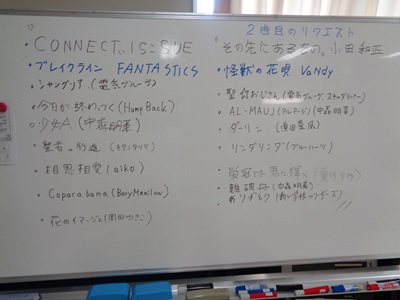 ・CONNECT
・ブレイクライン FANTASTICS
・シャングリア (電気グルーヴ)
・今日が終わってく (Hump Back)
・少女A (中森明菜)
・聖者の行進 (キタニタツヤ)
・相思相愛 (aiko)
・Copacabana (Bary Manilow)
・花のイマージュ
2週目のリクエスト
・その先にあるもの。小田和正
・怪獣の花唄 Vandy
・聖☆おじさん (電気グルーヴ、スチャダラパー)
・AL-MAUJ (アルマージ) (中森明菜)
・ダーリン
・リンダリンダ (ブルーハーツ)
・栄冠は君に輝く
・難破船 (中森明菜)